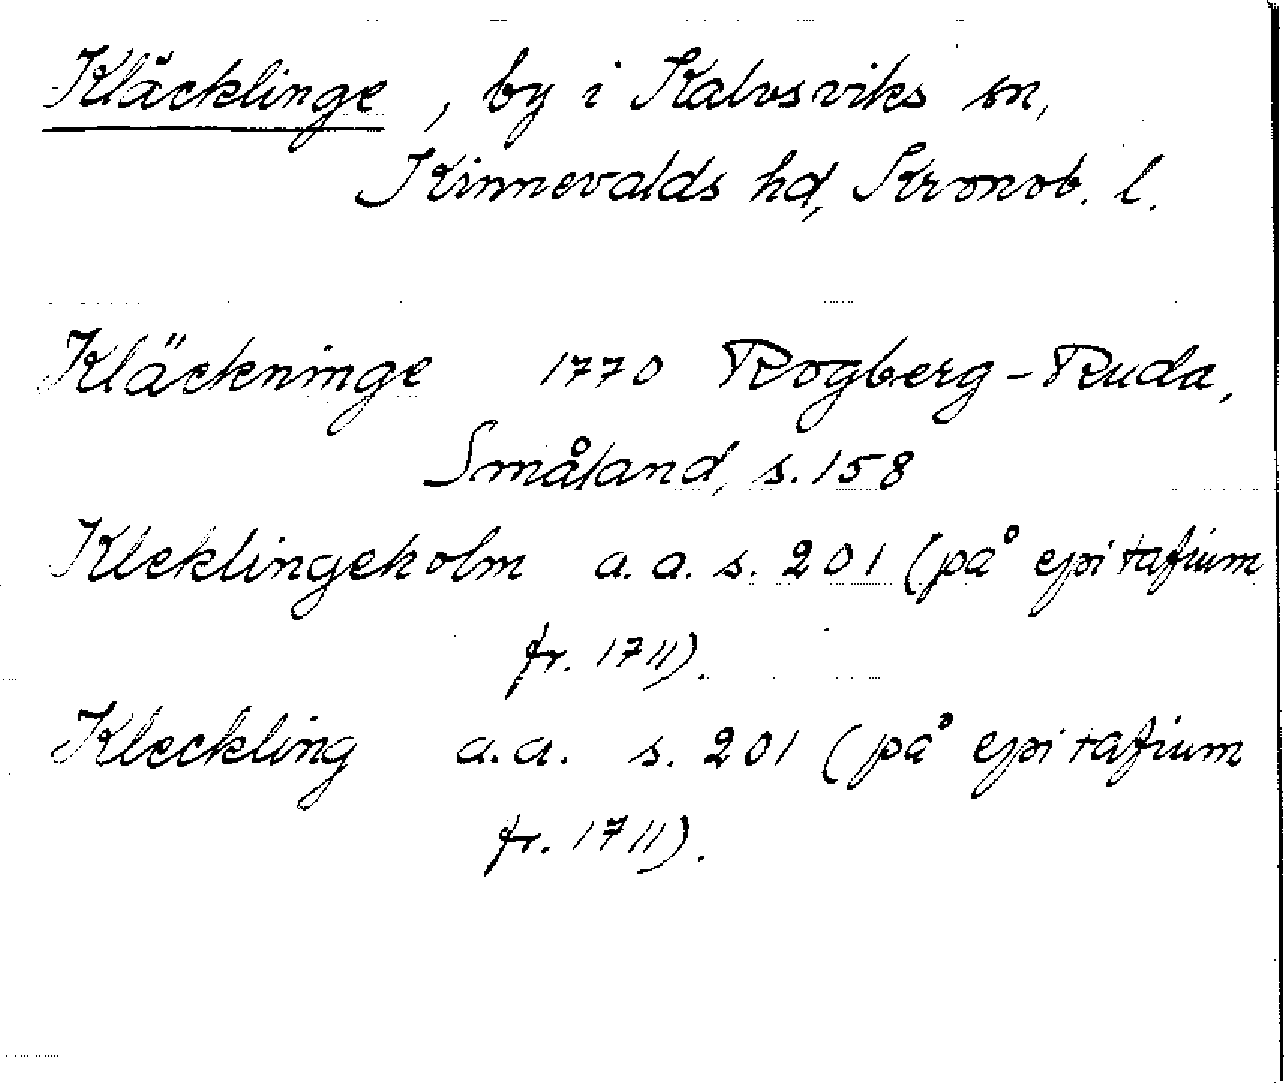 Kläcklinge, by i Kalvsviks sn,
Kinnevalds hd, Kronob. l.
Kläckninge 1770 Rogberg-Ruda,
Småland, s. 158
Klecklingeholm a.a. s. 201 (på epitafium
fr. 1711).
Kleckling a.a. s. 201 (på epitafium
fr. 1711).